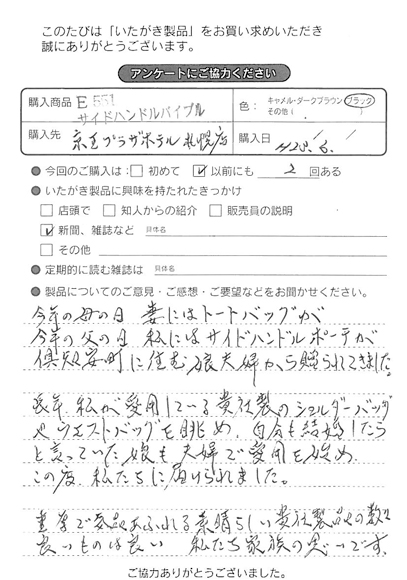 このたびは「いたがき製品」をお買い求めいただき
誠にありがとうございます。
アンケートにご協力ください
購入商品 E 551
サイドハンドルバイブル
色： キャメル・ダークブラウン・ブラック
その他（ ）
購入先 京王プラザホテル札幌店
購入日 H25. 6. 1
● 今回のご購入は： □ 初めて ☑ 以前にも 2 回ある
● いたがき製品に興味を持たれたきっかけ
□ 店頭で □ 知人からの紹介 □ 販売員の説明
☑ 新聞、雑誌など 具体名
□ その他
● 定期的に読む雑誌は 具体名
● 製品についてのご意見・ご感想・ご要望などをお聞かせください。
今年の母の日 妻にはトートバッグが
今年の父の日 私にはサイドハンドルポーチが
倶知安町に住む娘夫婦から贈られてきました。
長年、私が愛用している貴社製のショルダーバッグ
やウエストバッグを眺め、自分も結婚したら
と言っていた娘も夫婦で愛用を始め、
この度、私たちに届けられました。
重厚で気品あふれる素晴らしい貴社製品の数々
良いものは良い 私たち家族の思いです。
ご協力ありがとうございました。